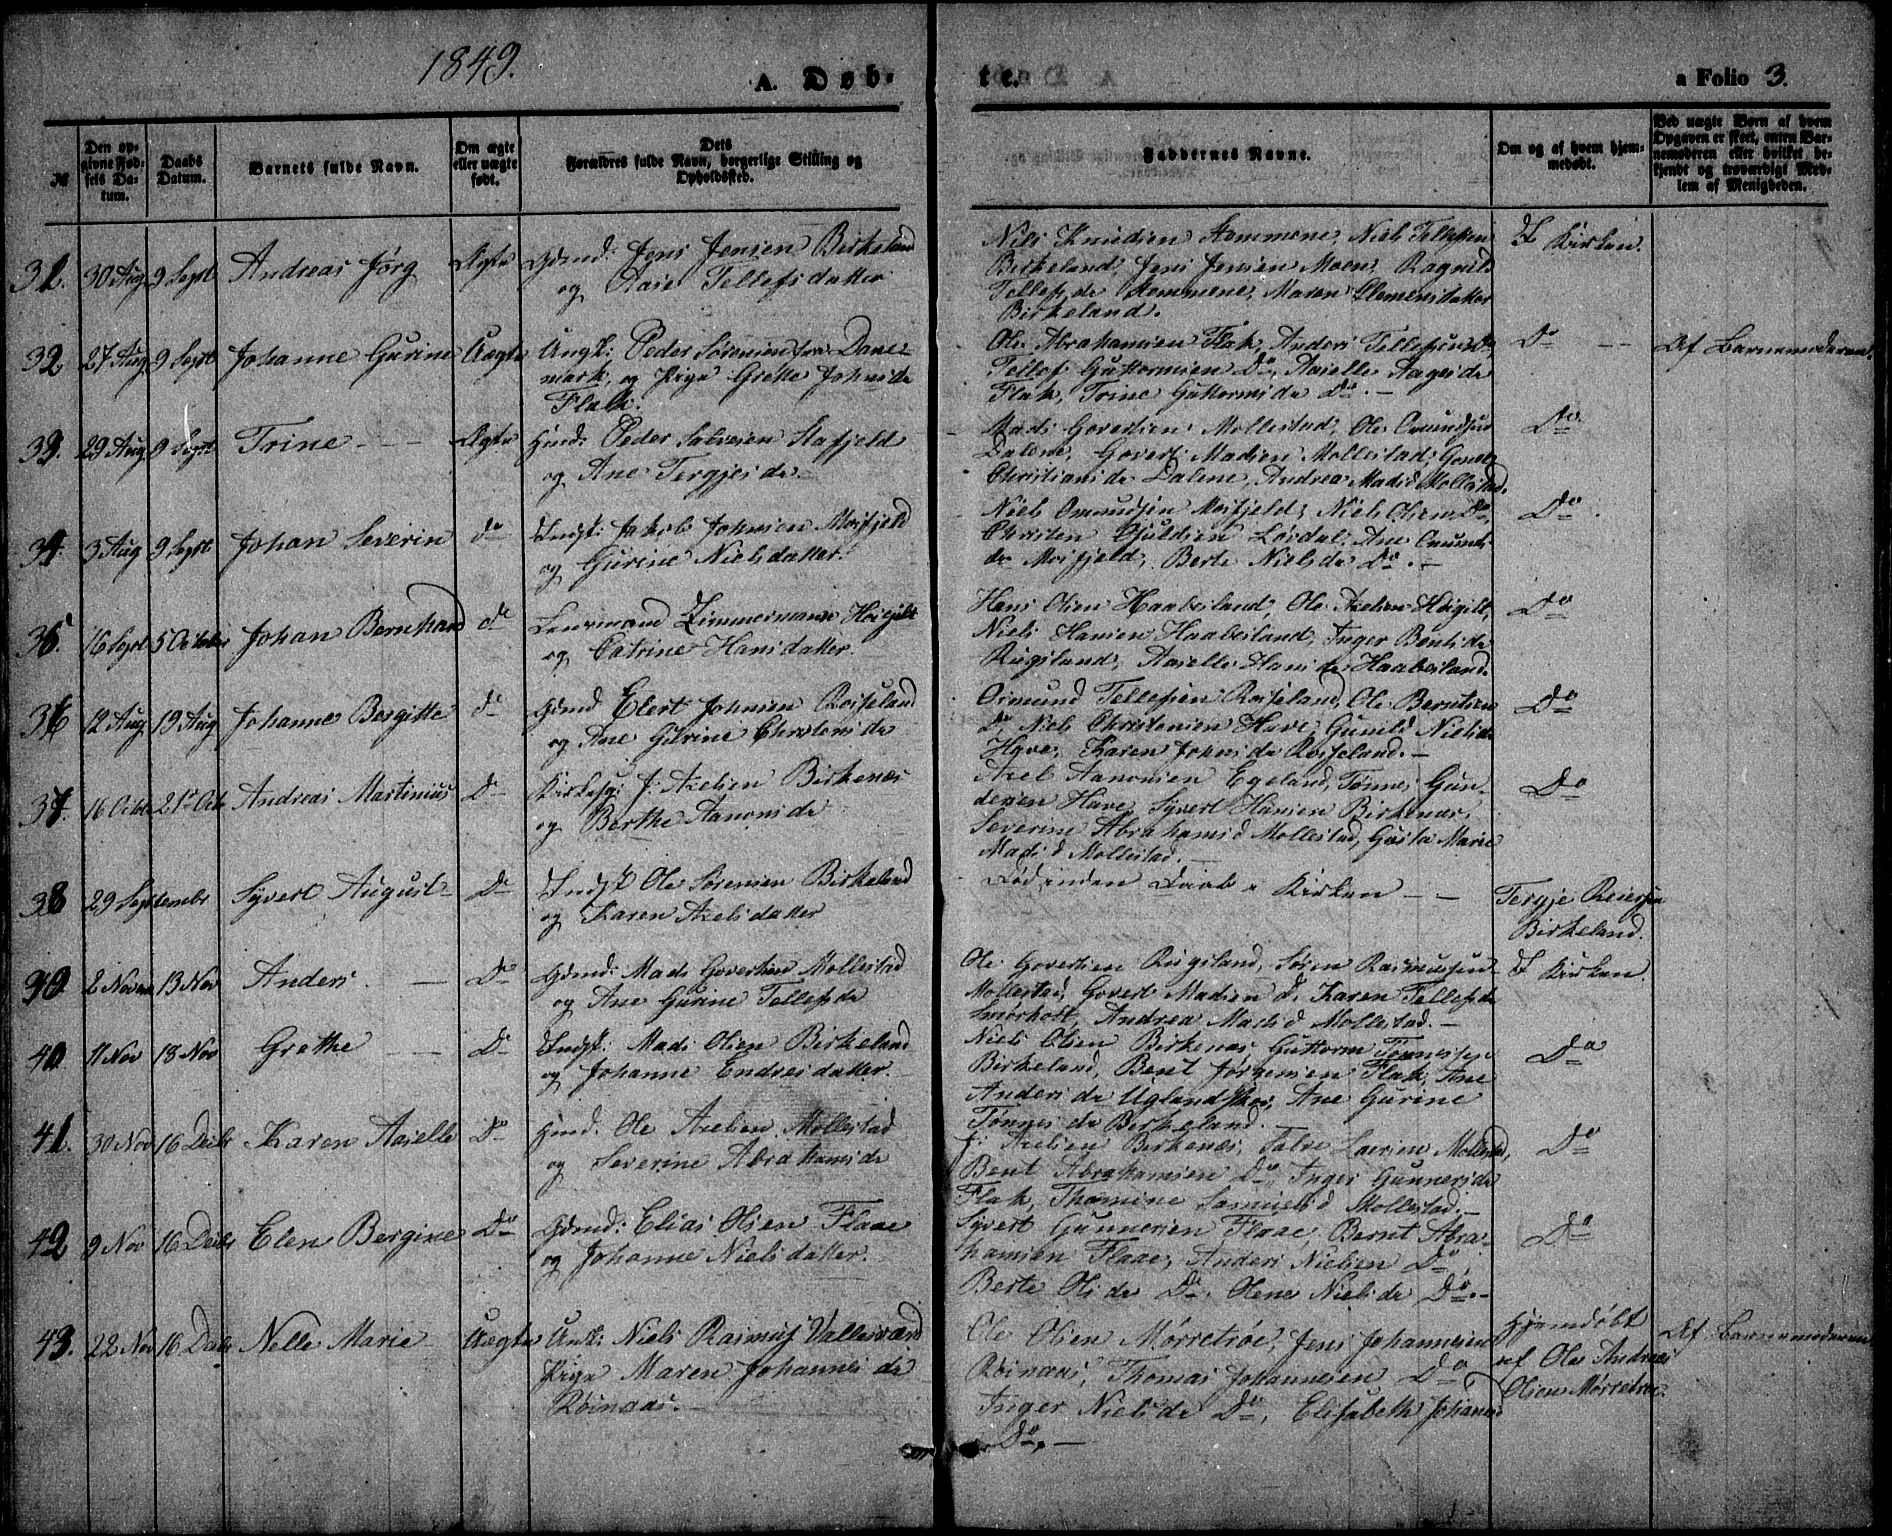 1849.
A. Døb-
te.
a Folio 3.
№
Den op-
givne Fød-
sels Da-
tum.
Daabs
Datum.
Barnets fulde Navn.
Om ægte
eller uægte
født.
Dets
Forældres fulde Navn, borgerlige Stilling og
Opholdssted.
Faddernes Navne.
Om og af hvem hjem-
medøbt.
Ved uægte Børn af hvem
Opgaven er skeet, enten Bar-
nemoderen eller hvilket, be-
kjendt og troværdigt Med-
lem af Menigheden.
31. 30 Aug 9 Sept Andreas Jørg Ægte Gdmd: Jens Jensen Birkeland
og Aase Tellefsdatter
Nils Knudsen Hommene, Niels Tellefsen
Birkeland, Jens Jensen Moen, Ragnild
Tellefsde Hommene, Maren Clemensdatter
Birkeland.
I Kirken.
32 27 Aug 9 Sept Johanne Gurine Uægte Ungk: Peder Sørensen fra Dane-
mark, og Pige Grethe Johnsde
Flak.
Ole Abrahamsen Flak, Anders Tellefsen Do,
Tellef Guttormsen Do, Aasille Aagesde
Flak, Trine Guttormsde Do. -
Do - -
Af Barnemoderen.
33. 29 Aug 9 Sept Trine - - - Ægte Hmd: Peder Salvesen Stafjeld
og Ane Tergjesde
Mads Govertsen Mollestad, Ole Omundsen
Dalene, Govert Madsen Mollestad,
Christiansde Dalene, Andrea Madsd Mollestad.
Do
34. 3 Aug 9 Sept Johan Severin do Indst: Jakob Johnsen Moifjeld
og Gurine Nielsdatter.
Niels Omundsen Moifjeld, Niels Olsen Do,
Christen Lørdal, Ane Omunds-
de Moifjeld, Berte Nielsde Do. -
Do.
35. 16 Sept 5 October Johan Bernhard do Zimmermann Høigilt
og Catrine Hansdatter.
Hans Olsen Haabesland, Ole Axelsen Høigilt,
Niels Hansen Haabesland, Inger Bentsde
Rugsland, Aasille Hansde Haabesland.
Do
36 12 Aug 19 Aug Johanne Bergitte do Gdmd Elert Johnsen Roiseland
og Ane Gurine Christensde
Osmund Tellefsen Roiseland, Ole Berntsen
Do, Niels Christensen Have, Gunild Nielsde
Have, Karen Johnsde Roiseland. -
Do
37. 16 Octb 21de Octb Andreas Martinius Do Kirkesg: J: Axelsen Birkenæs
og Berthe Aanonsde
Axel Aanonsen Egeland, Tønnes Gun-
dersen Have, Syvert Hansen Birkenæs,
Severine Abrahamsd Mollestad, Gusta Marie
Madsd Mollestad. -
Do
38 29 Septembr Syvert August - Do Indst Ole Sørensen Birkeland
og Karen Axelsdatter
Død inden Daab i Kirken - -
Tergje Reiersen
Birkeland.
39 2 Novbr 13 Nov Anders. - Do Gdmd: Mads Govertsen Mollestad
og Ane Gurine Tellefsde
Ole Govertsen Rugsland, Søren Rasmussen
Mollestad, Govert Madsen do, Karen Tellefsde
Andrea Madsd Mollestad. -
I Kirken
40. 11 Nov 18 Nov Grethe - - Do Indst: Mads Olsen Birkeland
og Johanne Endresdatter.
Niels Olsen Birkenæs, Guttorm Tønnesen
Birkeland, Bent Jørgensen Flak, Ane
Andersde Uglandskov, Ane Gurine
Tønnesde Birkeland. -
Do
41. 30 Nov 16 Decbr Karen Aasille Do Hmd. Ole Axelsen Mollestad
og Severine Abrahamsde
J: Axelsen Birkenæs, Salve Larsen Mollestad,
Bent Abrahamsen Do, Inger Gunnersde
Flak, Thomine Samuelsd Mollestad. -
Do
42 9 Nov 16 Decbr Elen Bergine Do Gdmd: Elias Olsen Flaae
og Johanne Nielsdatter.
Syvert Gunnersen Flaae, Bernt Abra-
hamsen Flaae, Anders Nielsen Do,
Berte Olsde Do, Olene Nielsde Do. -
Do
43. 22 Nov 16 Decbr Nelle Marie Uægte Unk: Niels Rasmus Vallesværd
Pige Maren Johannesde
Roinaas. -
Ole Olsen Mørretrøe, Jens Johannesen
Roinaas, Thomas Johannesen Do,
Inger Nielsde Do, Elisabeth Johannesd
Do. -
Hjemdøbt
af Ole Andreas
Olsen Mørretrøe.
Af Barnemoderen